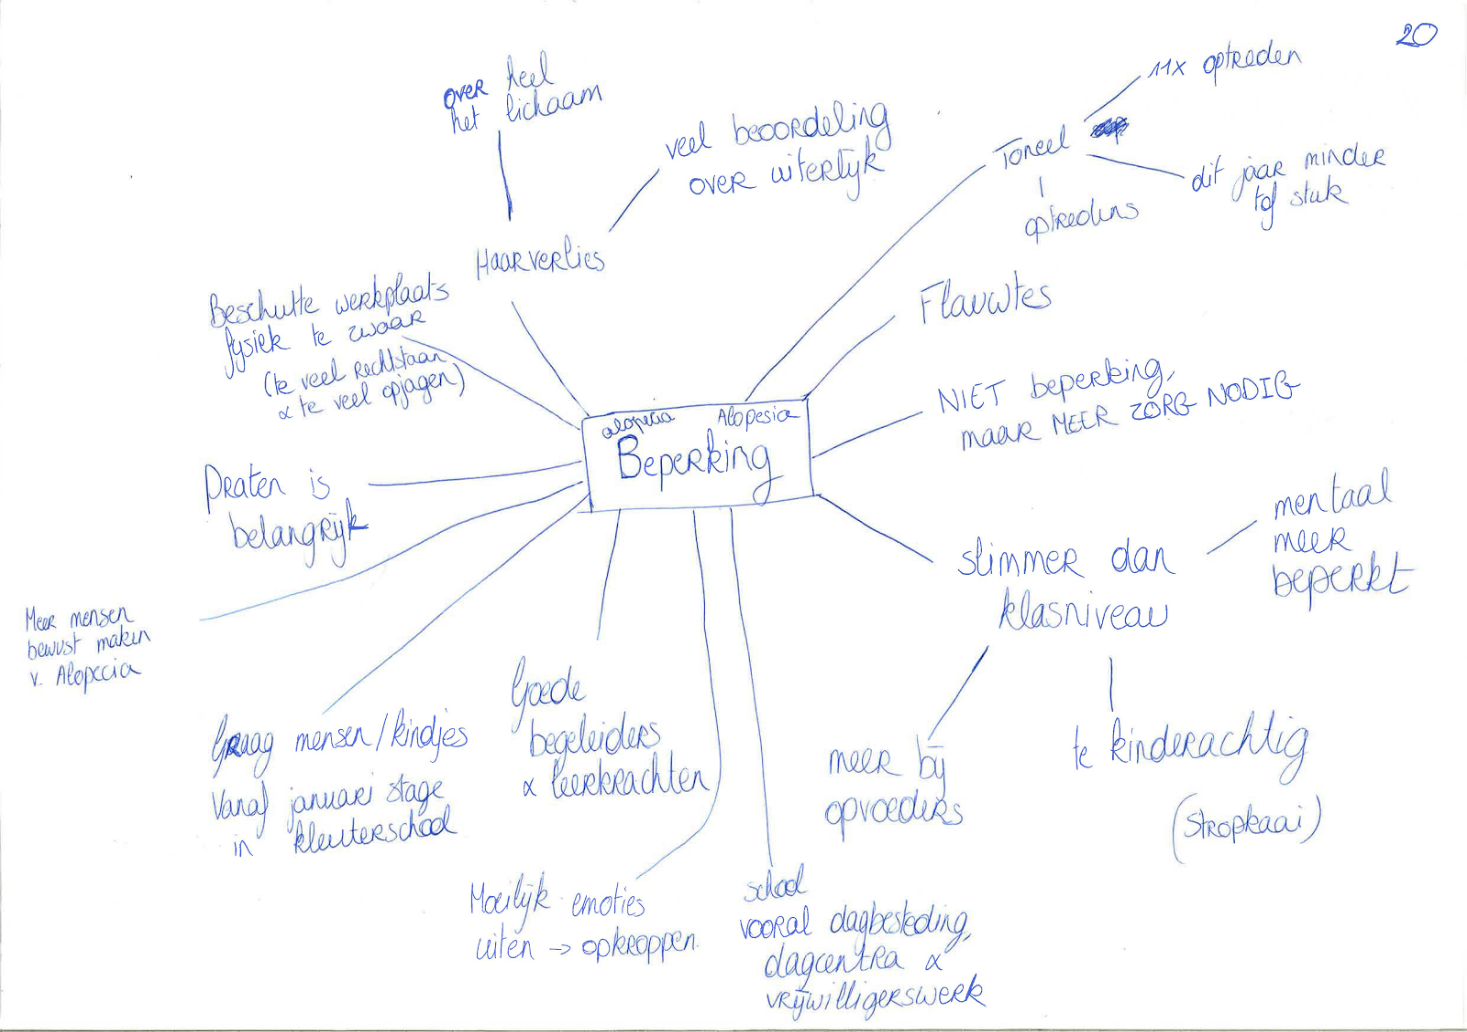 20
over heel
het lichaam
veel beoordeling
over uiterlijk
Haarverlies
11x optreden
Toneel
dit jaar minder
tof stuk
optredens
Beschutte werkplaats
fysiek te zwaar
(te veel rechtstaan
& te veel opjagen)
Flauwtes
NIET beperking,
maar MEER ZORG NODIG
alopecia
Alopesia
Beperking
Praten is
belangrijk
slimmer dan
klasniveau
mentaal
meer
beperkt
Meer mensen
bewust maken
v. Alopecia
Graag mensen/kindjes
Vanaf januari stage
in kleuterschool
Goede
begeleiders
& leerkrachten
meer bij
opvoeders
te kinderachtig
(stropkaai)
Moeilijk emoties
uiten -> opkroppen
school
vooral dagbesteding,
dagcentra &
vrijwilligerswerk